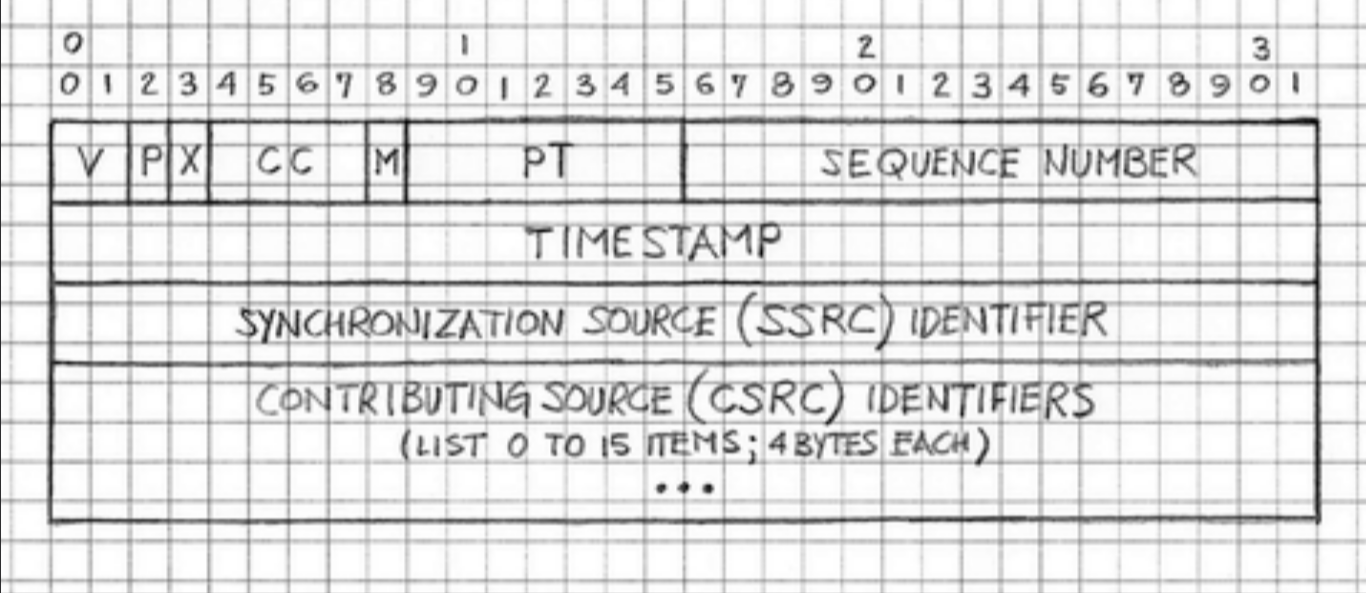 0 1 2 3
0 1 2 3 4 5 6 7 8 9 0 1 2 3 4 5 6 7 8 9 0 1 2 3 4 5 6 7 8 9 0 1
V P X CC M PT SEQUENCE NUMBER
TIMESTAMP
SYNCHRONIZATION SOURCE (SSRC) IDENTIFIER
CONTRIBUTING SOURCE (CSRC) IDENTIFIERS
(LIST 0 TO 15 ITEMS; 4 BYTES EACH)
...